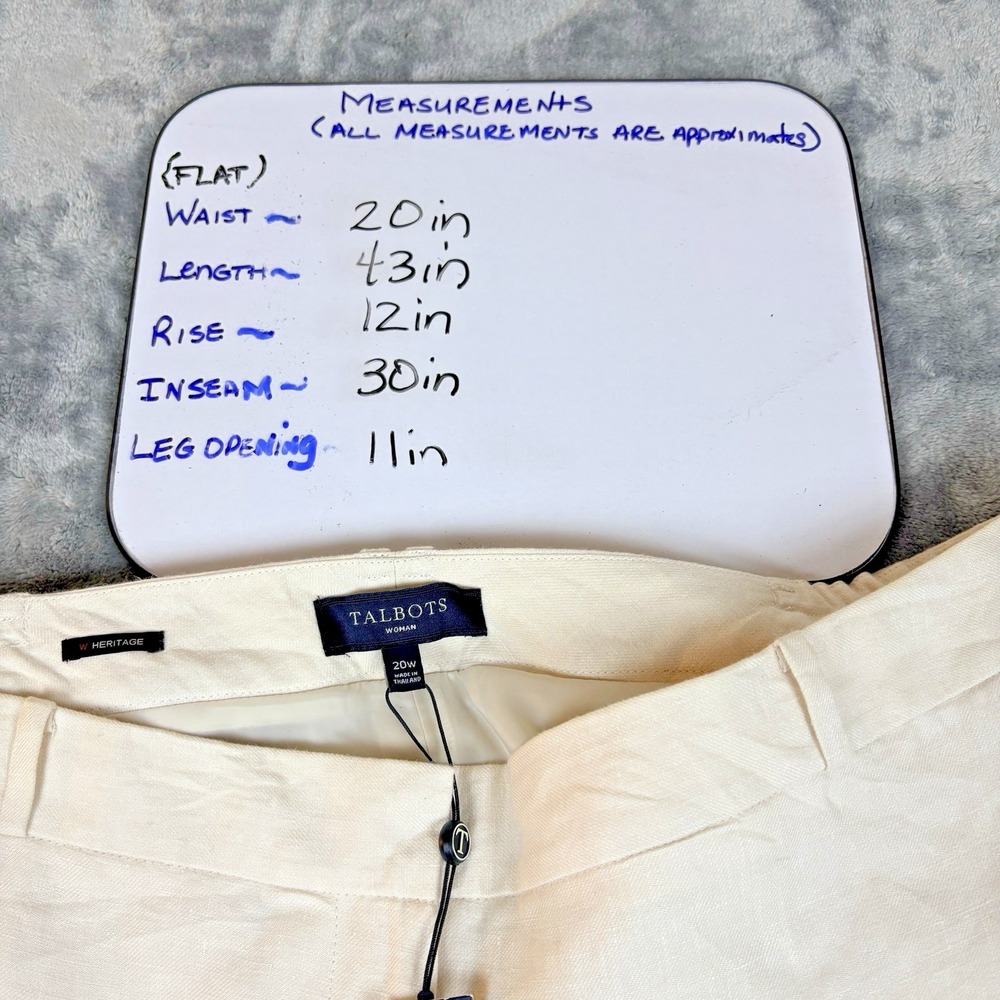 MEASUREMENtS
(ALL MEASUREMENTS ARE APProximates)
(FLAT)
WAIST ~ 20in
LenGTH ~ 43in
RISE ~ 12in
INSEAM ~ 30in
LEG OPENiNg - 11in
TALBOTS
WOMAN
W HERITAGE
20W
MADE IN
THAILAND
T